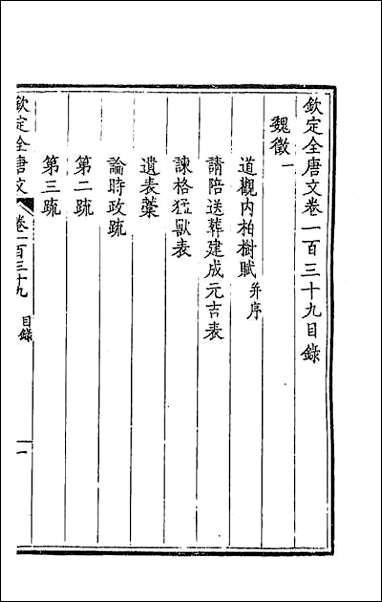 欽定全唐文卷一百三十九目錄
魏徵一
道觀内柏樹賦并序
請陪送葬建成元吉表
諫格猛獸表
遺表藁
論時政疏
第二疏
第三疏
欽定全唐文 卷一百三十九 目錄 一